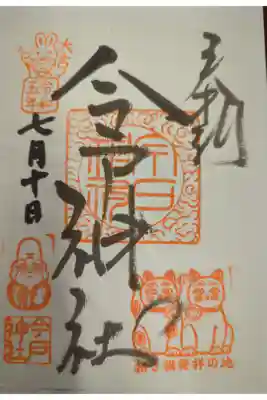 奉拝
今戸神社
今戸神社
七月十日
今戸神社
招き猫発祥の地